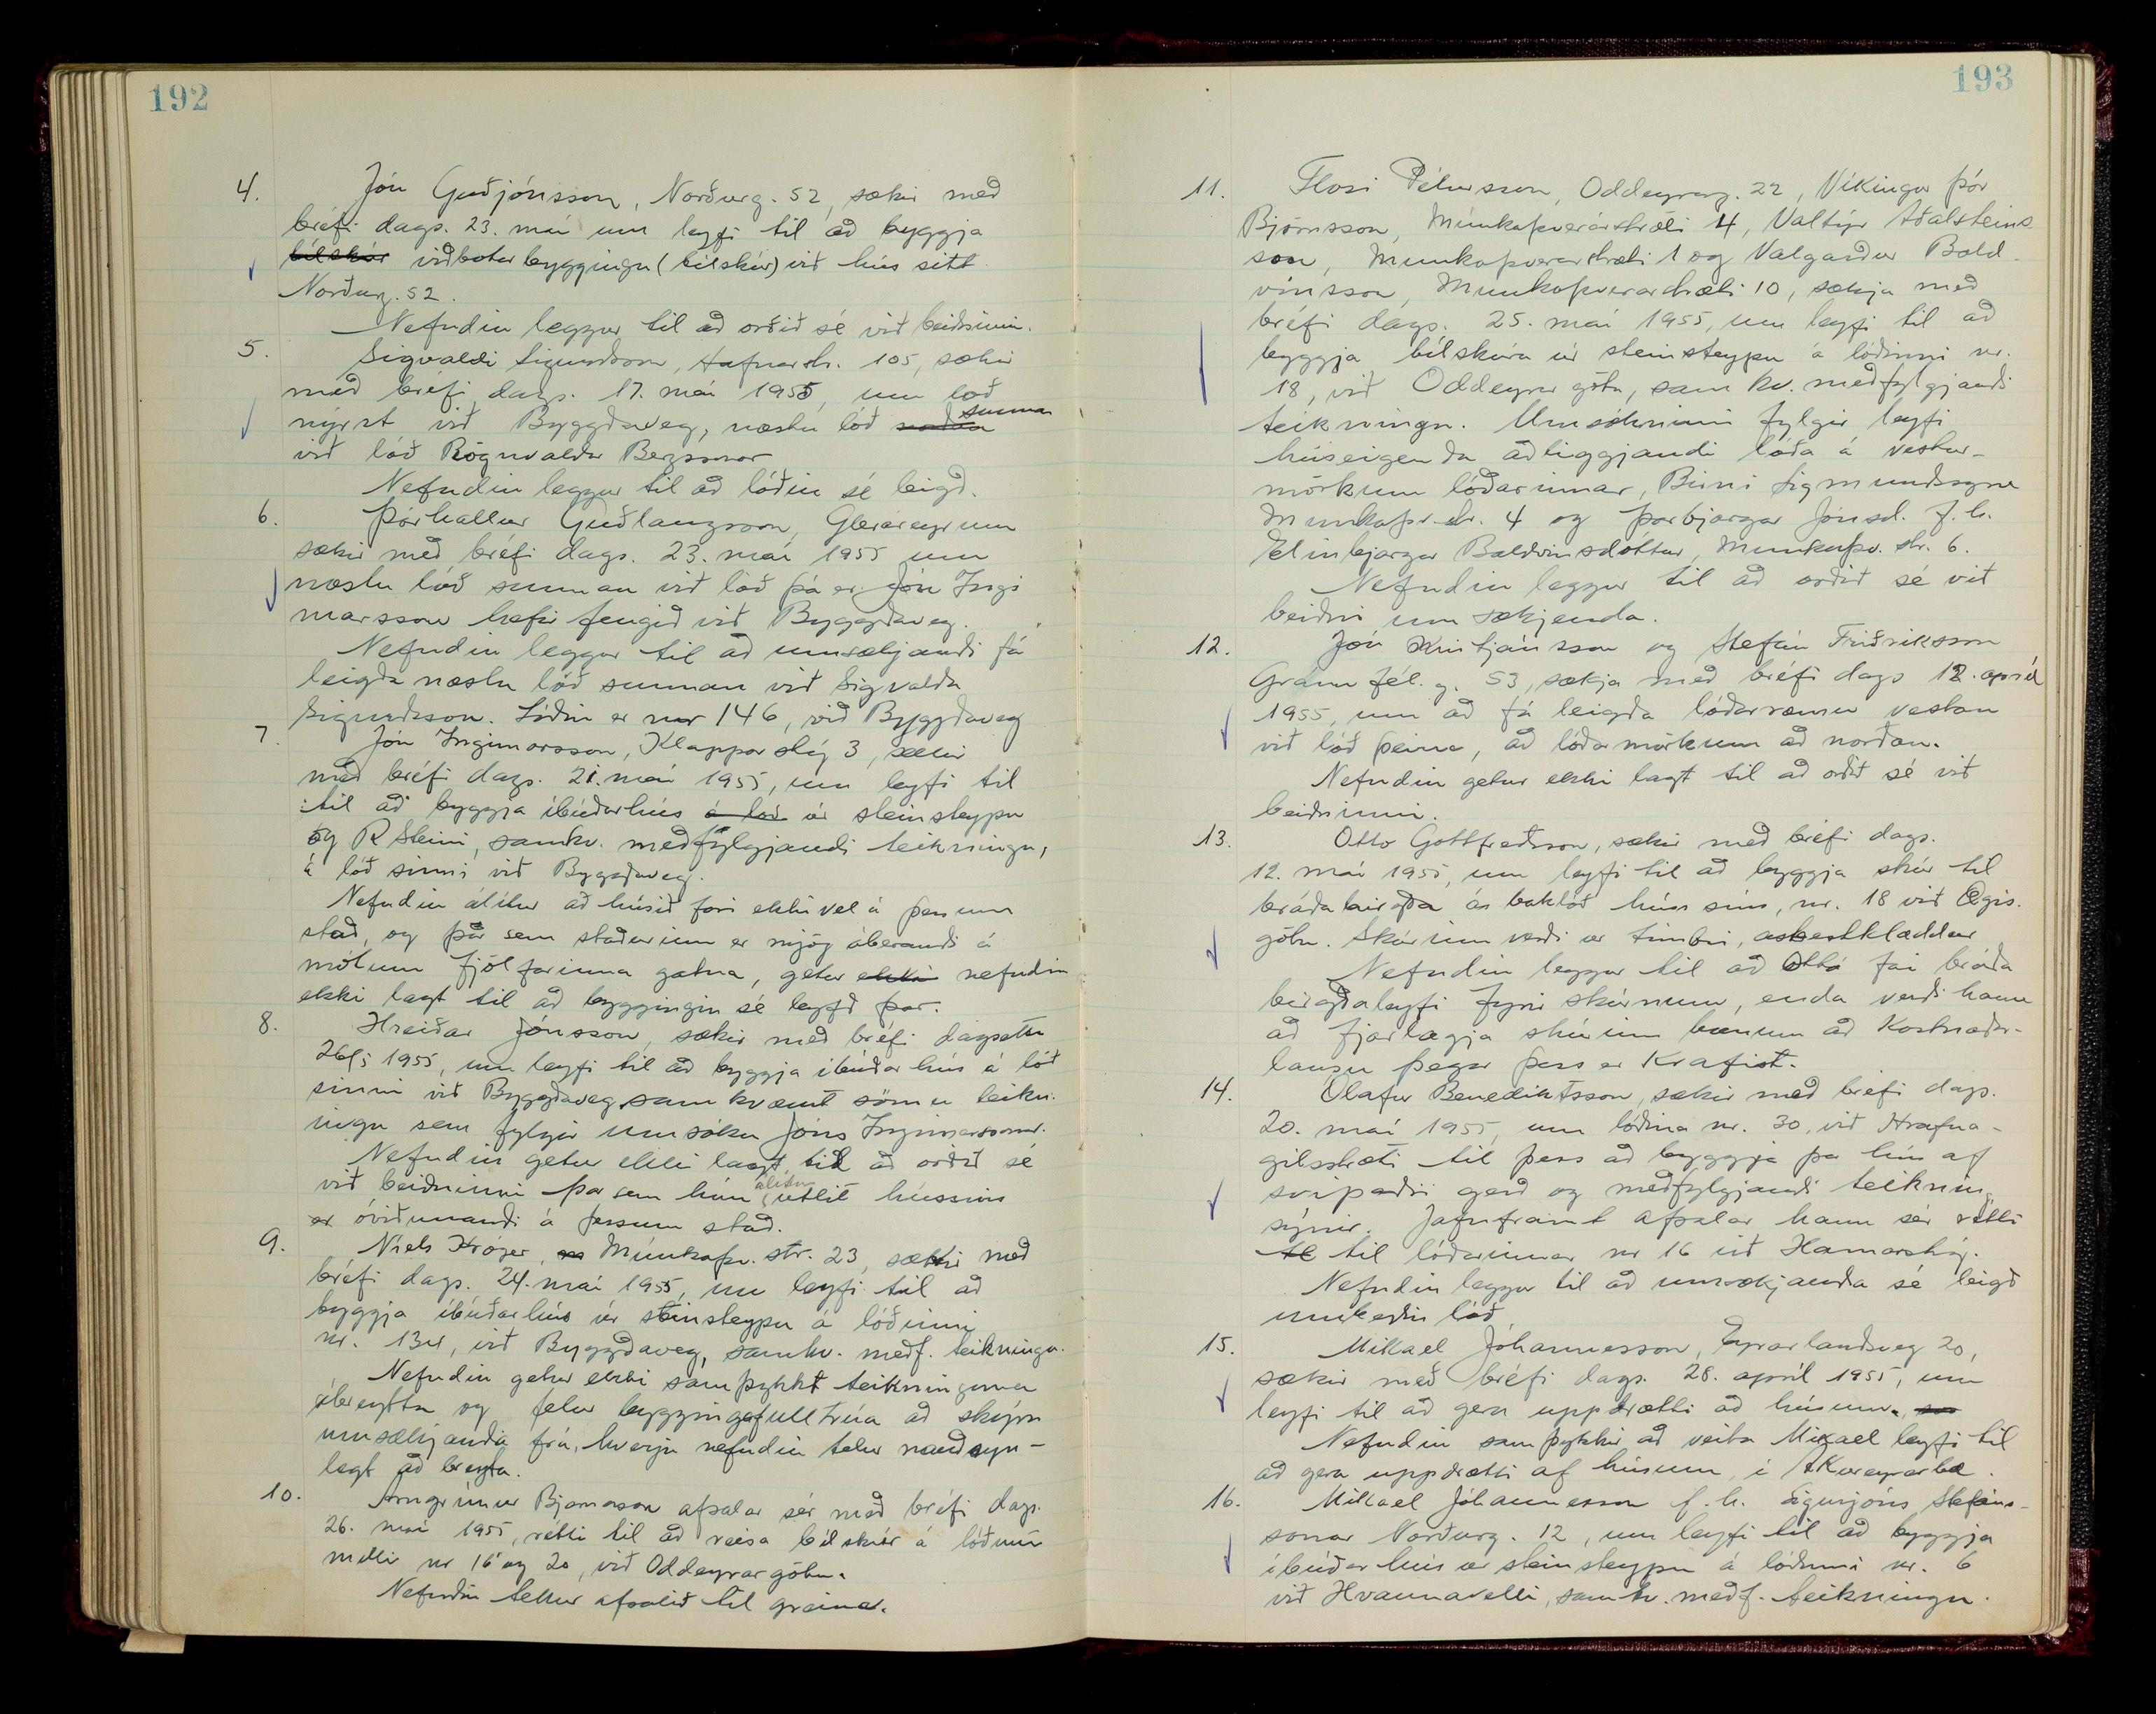 192
4. Jón Guðjónsson, Norðurg. 52, sækir með
bréfi dags. 23. maí um leyfi til að byggja
bílskúr viðbotarbyggingu (bílskúr) við hús sitt
Norðurg. 52.
Nefndin leggur til að orðið sé við beiðninni.
5. Sigvaldi Sigurðsson, Hafnarstr. 105, sækir
með bréfi dags. 17. maí 1955, um lóð
nyrst við Byggðaveg, næstu lóð norðan sunnan
við lóð Rögnvaldar Bergssonar
Nefndin leggur til að lóðin sé leigð.
6. Þórhallur Guðlaugsson, Gleráreyrum
sækir með bréfi dags. 23. maí 1955 um
næstu lóð sunnan við lóð þá er Jón Ingi
marsson hefir fengið við Byggðaveg.
Nefndin leggur til að umsækjandi fá
leigða næstu lóð sunnan við Sigvalda
Sigurðsson. Lóðin er nr 146, við Byggðaveg
7. Jón Ingimarsson, Klapparstíg 3, sækir
með bréfi dags. 21. maí 1955, um leyfi til
til að byggja íbúðarhús á lóð úr steinsteypu
og R Steini, samkv. meðfylgjandi teikningu,
á lóð sinni við Byggðaveg.
Nefndin álítur að húsið fari ekki vel á þessum
stað, og þar sem staðurinn er mjög áberandi á
mótum fjölfarinna gatna, getur ekki nefndin
ekki lagt til að byggingin sé leyfð þar.
8. Hreiðar Jónsson, sækir með bréfi dagsettu
26/5 1955, um leyfi til að byggja íbúðarhús á lóð
sinni við Byggðaveg samkvæmt sömu teikn-
ingu sem fylgir umsókn Jóns Ingimarssonar.
Nefndin getur ekki lagt til að orðið sé
við beiðninni þar sem hún álítur útlit hússins
er óviðunandi á þessum stað.
9. Níels Krüger, Múnkaþv. str. 23, sækir með
bréfi dags. 24. maí 1955, um leyfi til að
byggja íbúðarhús úr steinsteypu á lóðinni
nr. 134, við Byggðaveg, samkv. meðf. teikningu.
Nefndin getur ekki samþykkt teikninguna
óbreytta og felur byggingafulltrúa að skýra
umsækjanda frá, hverju nefndin telur nauðsyn-
legt að breyta.
10. Arngrímur Bjarnason afsalar sér með bréfi dags.
26. maí 1955, rétti til að reisa bílskúr á lóðinni
milli nr 16 og 20, við Oddeyrargötu.
Nefndin tekur afsalið til greina.
193
11. Flosi Pétursson, Oddeyrarg. 22, Víkingur Þór
Björnsson, Múnkaþverárstræti 4, Valtýr Aðalsteins
son, Munkaþverárstræti 1 og Valgarður Bald-
vinsson, Munkaþverárstræti 10, sækja með
bréfi dags. 25. maí 1955, um leyfi til að
byggja bílskúra úr steinsteypu á lóðinni nr.
18, við Oddeyrargötu, samkv. meðfylgjandi
teikningu. Umsókninni fylgir leyfi
húseigenda aðliggjandi lóða á vestur-
mörkum lóðarinnar, Birni Sigmundssyni
Munkaþv.str. 4 og Þorbjargar Jónsd. f. h.
Elinbjargar Baldvinsdóttur, Munkaþv. str. 6.
Nefndin leggur til að orðið sé við
beiðni umsækjenda.
12. Jón Kristjánsson og Stefán Friðriksson
Gránufél.g. 53, sækja með bréfi dags 12. apríl
1955, um að fá leigða lóðarræmu vestan
við lóð þeirra, að lóðamörkum að norðan.
Nefndin getur ekki lagt til að orðið sé við
beiðninni.
13. Otto Gottfreðsson, sækir með bréfi dags.
12. maí 1955, um leyfi til að byggja skúr til
bráðabirgða á baklóð húss síns, nr. 18 við Ægis-
götu. Skúrinn verði úr timbri, asbestklæddur
Nefndin leggur til að Ottó fái bráða
birgðaleyfi fyrir skúrnum, enda verði hann
að fjarlægja skúrinn bænum að kostnaðar-
lausu þegar þess er krafist.
14. Ólafur Benediktsson, sækir með bréfi dags.
20. maí 1955, um lóðina nr. 30, við Hrafna-
gilsstræti til þess að byggja þar hús af
svipaðri gerð og meðfylgjandi teikning
sýnir. Jafnframt afsalar hann sér rétti
til til lóðarinnar nr 16 við Hamarstíg.
Nefndin leggur til að umsækjanda sé leigð
umbeðin lóð
15. Mikael Jóhannesson, Eyrarlandsveg 20,
sækir með bréfi dags. 28. apríl 1955, um
leyfi til að gera uppdrætti að húsum.
Nefndin samþykkir að veita Mikael leyfi til
að gera uppdrætti af húsum í Akureyrarbæ.
16. Mikael Jóhannesson f. h. Sigurjóns Stefáns-
sonar Norðurg. 12, um leyfi til að byggja
íbúðarhús úr steinsteypu á lóðinni nr. 6
við Hvannavelli, samkv. meðf. teikningu.